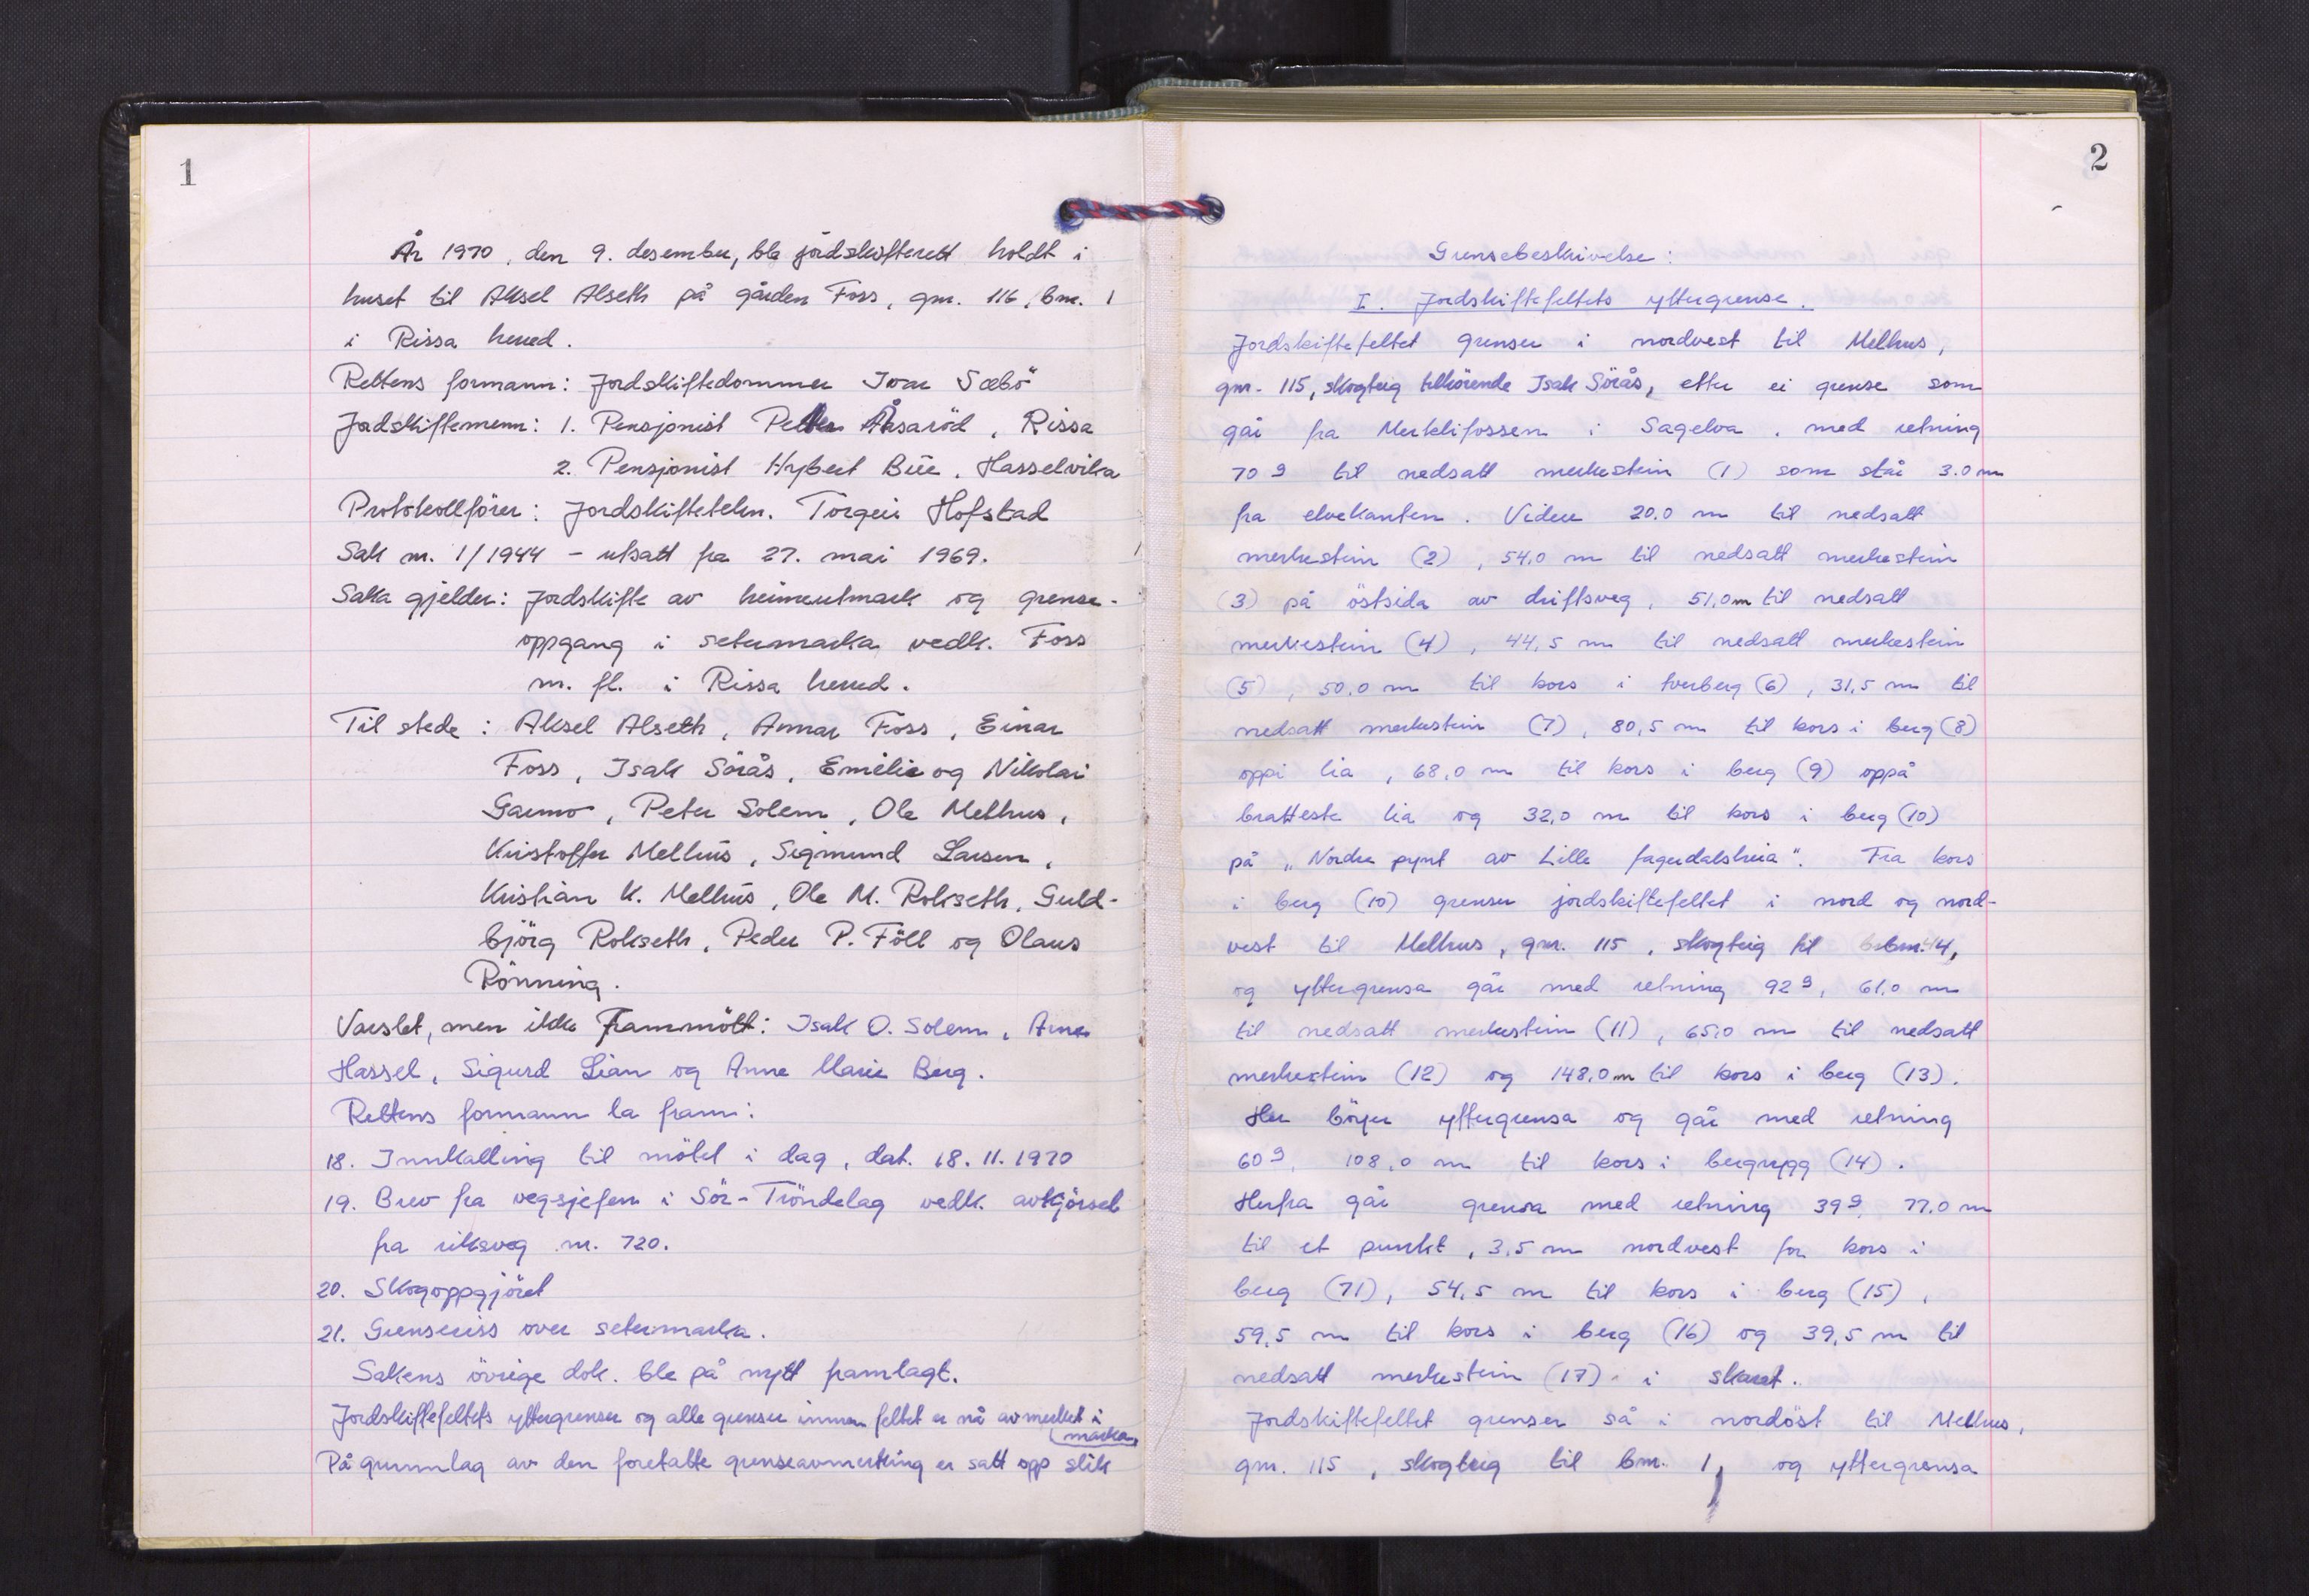 1
År 1970, den 9. desember, ble jordskifterett holdt i
huset til Aksel Alseth på gården Foss, gnr. 116, bnr. 1
i Rissa herred.
Rettens formann: Jordskiftedommer Ivar Sæbö
Jordskiftemenn: 1. Pensjonist Petter Åsaröd, Rissa
2. Pensjonist Hybert Bue, Hasselvika
Protokollförer: Jordskiftetekn. Torgeir Hofstad
Sak nr. 1/1944 - utsatt fra 27. mai 1969.
Saka gjelder: Jordskifte av heimeutmark og grense-
oppgang i setermarka vedk. Foss
m. fl. i Rissa herred.
Til stede: Aksel Alseth, Annar Foss, Einar
Foss, Isak Sörås, Emilie og Nikolai
Garmo, Peter Solem, Ole Melhus,
Kristoffer Melhus, Sigmund Larsen,
Kristian K. Melhus, Ole M. Rokseth, Guld-
björg Rokseth, Peder P. Föll og Olaus
Rönning.
Varslet, men ikke frammött: Isak O. Solem, Arne
Hassel, Sigurd Lian og Anne Marie Berg.
Rettens formann la fram:
18. Innkalling til mötet i dag, dat. 18.11.1970
19. Brev fra vegsjefen i Sör-Tröndelag vedk. avkjörsel
fra riksveg nr. 720.
20. Skogoppgjöret
21. Grenseriss over setermarka.
Sakens övrige dok. ble på nytt framlagt.
Jordskiftefeltets yttergrenser og alle grenser innen feltet er nå avmerket i
marka.
På grunnlag av den foretatte grenseavmerking er satt opp slik
2
Grensebeskrivelse:
I. Jordskiftefeltets yttergrense.
Jordskiftefeltet grenser i nordvest til Melhus,
gnr. 115, skogteig tilhörende Isak Sörås, etter ei grense som
går fra Merklifossen i Sagelva, med retning
70 g til nedsatt merkestein (1) som står 3.0 m
fra elvekanten. Videre 20.0 m til nedsatt
merkestein (2), 54,0 m til nedsatt merkestein
(3) på östsida av driftsveg, 51,0 m til nedsatt
merkestein (4), 44,5 m til nedsatt merkestein
(5), 50,0 m til kors i tverberg (6), 31,5 m til
nedsatt merkestein (7), 80,5 m til kors i berg (8)
oppi lia, 68,0 m til kors i berg (9) oppå
bratteste lia og 32,0 m til kors i berg (10)
på „Nordre pynt av Lille fagerdalsheia“. Fra kors
i berg (10) grenser jordskiftefeltet i nord og nord-
vest til Melhus, gnr. 115, skogteig til bnr. 44,
og yttergrensa går med retning 92 g, 61,0 m
til nedsatt merkestein (11), 65,0 m til nedsatt
merkestein (12) og 148,0 m til kors i berg (13).
Her böyer yttergrensa og går med retning
60 g, 108,0 m til kors i bergrygg (14).
Herfra går grensa med retning 39 g, 77.0 m
til et punkt, 3,5 m nordvest for kors i
berg (71), 54,5 m til kors i berg (15),
59,5 m til kors i berg (16) og 39,5 m til
nedsatt merkestein (17) i skaret.
Jordskiftefeltet grenser så i nordöst til Melhus,
gnr. 115, skogteig til bnr. 1, og yttergrensa